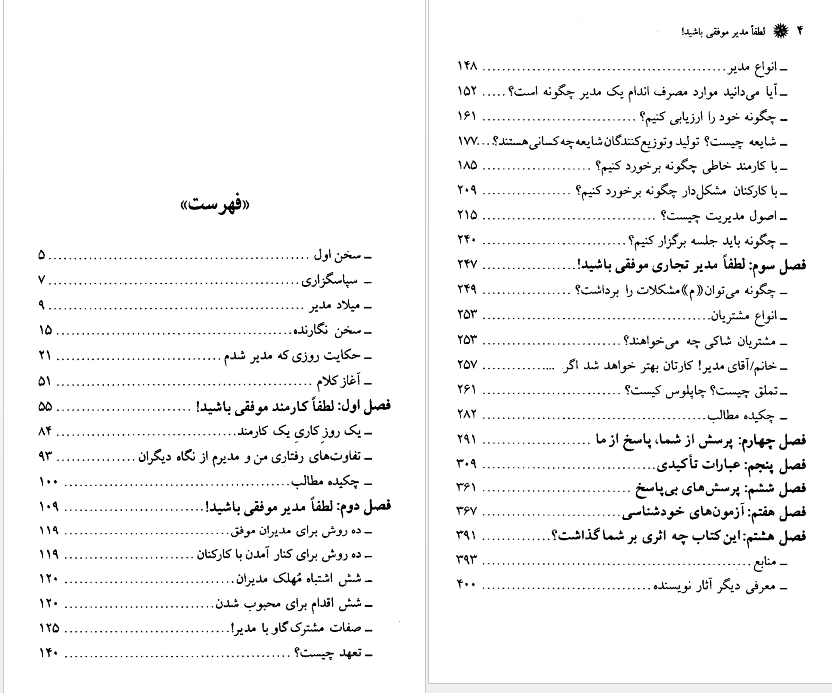 «فهرست»
ــ سخن اول ........ ۵
ــ سپاسگزاری ........ ۷
ــ میلاد مدیر ........ ۹
ــ سخن نگارنده ........ ۱۵
ــ حکایت روزی که مدیر شدم ........ ۲۱
ــ آغاز کلام ........ ۵۱
فصل اول: لطفاً کارمند موفقی باشید! ........ ۵۵
ــ یک روزِ کاریِ یک کارمند ........ ۸۴
ــ تفاوت‌های رفتاری من و مدیرم از نگاه دیگران ........ ۹۳
ــ چکیده مطالب ........ ۱۰۰
فصل دوم: لطفاً مدیر موفقی باشید! ........ ۱۰۹
ــ ده روش برای مدیران موفق ........ ۱۱۹
ــ ده روش برای کنار آمدن با کارکنان ........ ۱۱۹
ــ شش اشتباه مُهلک مدیران ........ ۱۲۰
ــ شش اقدام برای محبوب شدن ........ ۱۲۰
ــ صفات مشترک گاو با مدیر! ........ ۱۲۵
ــ تعهد چیست؟ ........ ۱۴۰
۴ لطفاً مدیر موفقی باشید!
ــ انواع مدیر ........ ۱۴۸
ــ آیا می‌دانید موارد مصرف اندام یک مدیر چگونه است؟ ..... ۱۵۲
ــ چگونه خود را ارزیابی کنیم؟ ........ ۱۶۱
ــ شایعه چیست؟ تولید و توزیع‌کنندگان شایعه چه کسانی هستند؟ ... ۱۷۷
ــ با کارمند خاطی چگونه برخورد کنیم؟ ........ ۱۸۵
ــ با کارکنان مشکل‌دار چگونه برخورد کنیم؟ ........ ۲۰۹
ــ اصول مدیریت چیست؟ ........ ۲۱۵
ــ چگونه باید جلسه برگزار کنیم؟ ........ ۲۴۰
فصل سوم: لطفاً مدیر تجاری موفقی باشید! ........ ۲۴۷
ــ چگونه می‌توان «م» مشکلات را برداشت؟ ........ ۲۴۹
ــ انواع مشتریان ........ ۲۵۳
ــ مشتریان شاکی چه می‌خواهند؟ ........ ۲۵۳
ــ خانم/آقای مدیر! کارتان بهتر خواهد شد اگر ... ........ ۲۵۷
ــ تملق چیست؟ چاپلوس کیست؟ ........ ۲۶۱
ــ چکیده مطالب ........ ۲۸۲
فصل چهارم: پرسش از شما، پاسخ از ما ........ ۲۹۱
فصل پنجم: عبارات تأکیدی ........ ۳۰۹
فصل ششم: پرسش‌های بی‌پاسخ ........ ۳۶۱
فصل هفتم: آزمون‌های خودشناسی ........ ۳۶۷
فصل هشتم: این کتاب چه اثری بر شما گذاشت؟ ........ ۳۹۱
ــ منابع ........ ۳۹۳
ــ معرفی دیگر آثار نویسنده ........ ۴۰۰